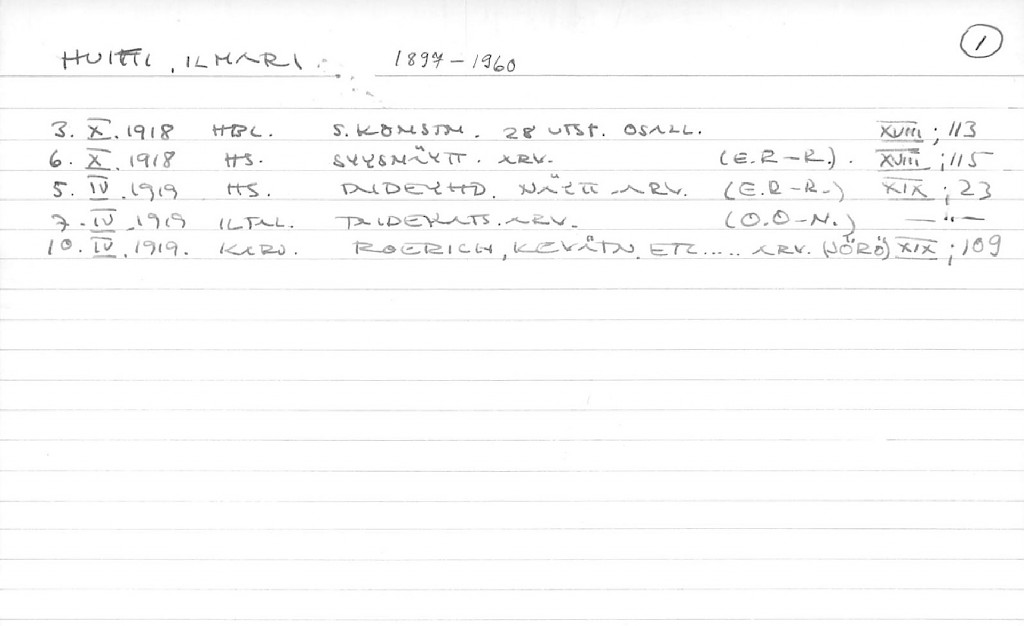 1
HUITTI, ILMARI 1897-1960
3. X. 1918 HBL. S. KONSTN. 28 UTST. OSALL. XVIII; 113
6. X. 1918 HS. SYYSNÄYTT. ARV. (E.R-R.). XVIII; 115
5. IV. 1919 HS. TAIDEYHD. NÄYTT. ARV. (E.R-R.) XIX; 23
7. IV. 1919 ILTAL. TAIDEKATS. ARV. (O.O-N.) —"—
10. IV. 1919. KARJ. ROERICH, KEVÄTN. ETC..... ARV. (JÖRÖ) XIX; 109